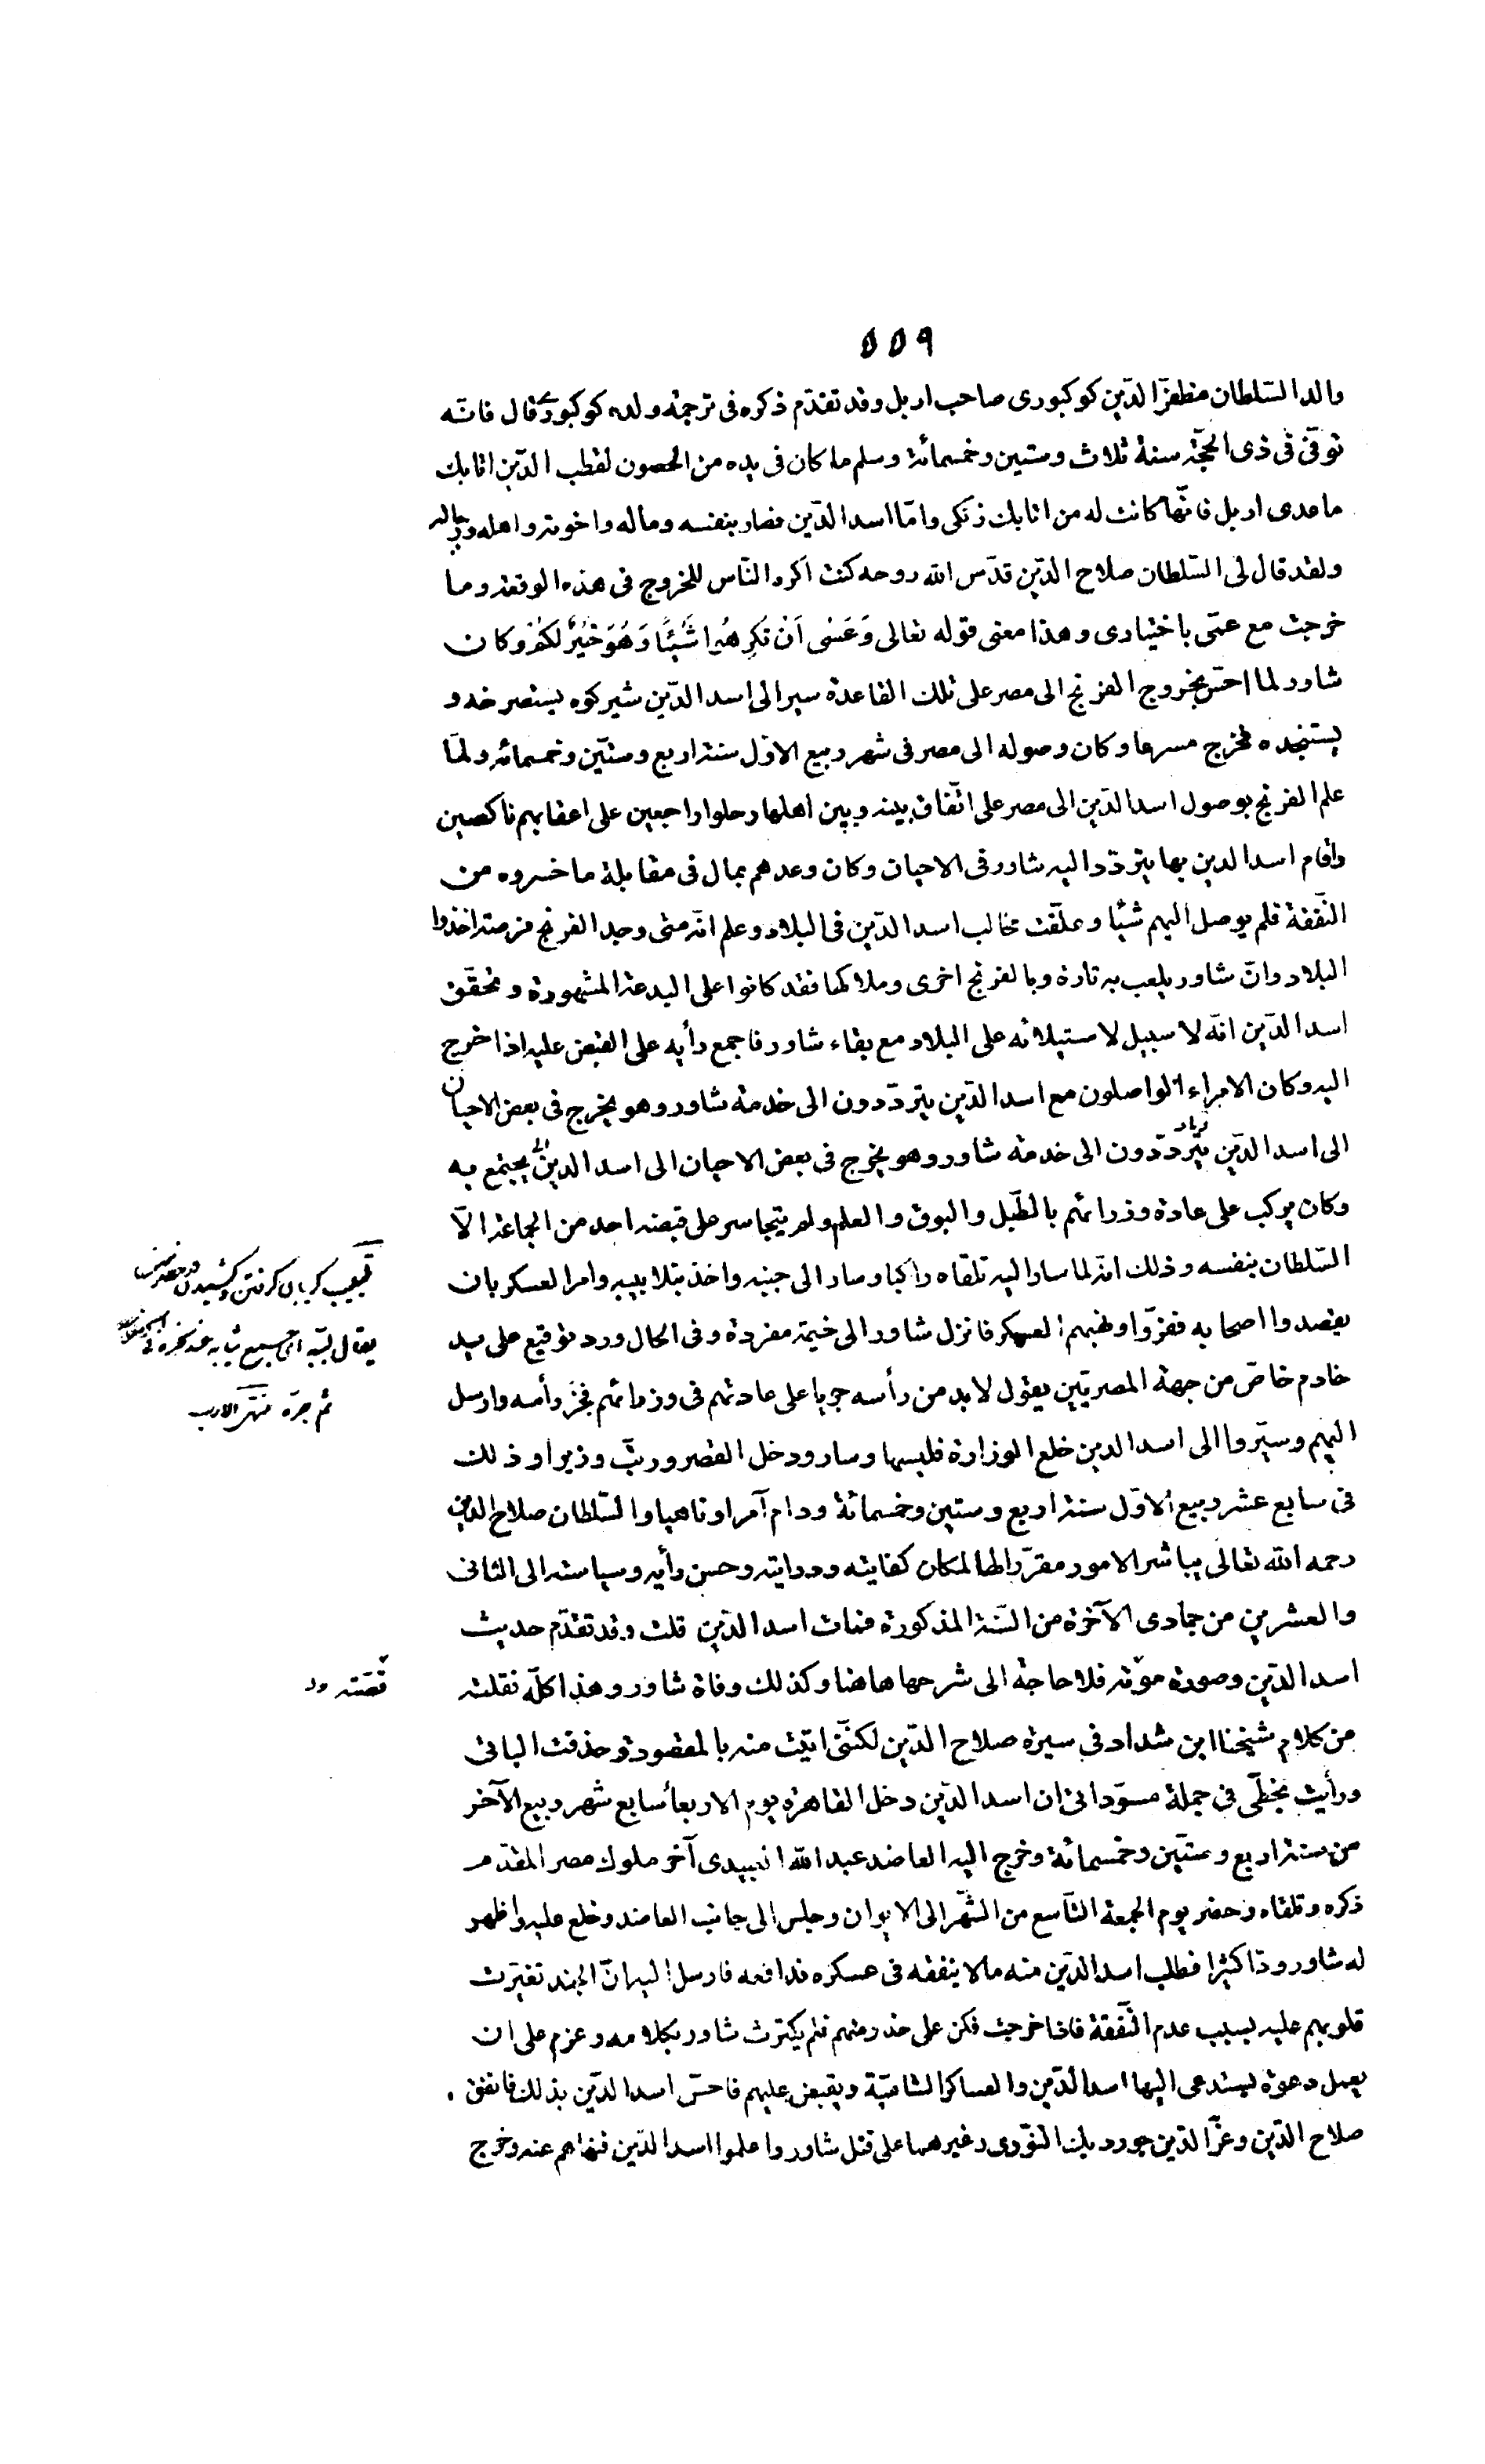 ٥٥٩
والد السّلطان مظفّر الدّين كوكبورى صاحب اربل وقد تقدّم ذكره فى ترجمة ولده كوكبورى قال فانّه
توفّى فى ذى الحجّة سنة ثلاث وستين وخمسمائة وسلم ما كان فى يده من الحصون لقطب الدّين اتابك
ما عدى اربل فانّها كانت له من اتابك زنكى وامّا اسد الدّين فسار بنفسه وماله واخوته واهله ورجاله
ولقد قال لى السّلطان صلاح الدّين قدّس الله روحه كنت اكره النّاس للخروج فى هذه الوقعة وما
خرجت مع عمّى باختيارى وهذا معنى قوله تعالى وَعَسٰى اَنْ تَكْرِهُوا شَيْئًا وَهُوَ خَيْرٌ لَكُمْ وكان
شاور لما احسّ بخروج الفرنج الى مصر على تلك القاعدة سير الى اسد الدّين شيركوه يستصرخه و
يستنجده فخرج مسرعا وكان وصوله الى مصر فى شهر ربيع الاوّل سنة اربع وستّين وخمسمائه ولمّا
علم الفرنج بوصول اسد الدّين الى مصر على اتّفاق بينه وبين اهلها رحلوا راجعين على اعقابهم ناكصين
واقام اسد الدين بها يتردّد اليه شاور فى الاحيان وكان وعدهم بمال فى مقابلة ما خسروه من
النّفقة فلم يوصل اليهم شيًا وعلّقت مخالب اسد الدّين فى البلاد وعلم انّه متى وجد الفرنج فرصة اخذوا
البلاد وانّ شاور يلعب به تارة وبالفرنج اخرى وملاكها فقد كانوا على البدعة المشهورة وتحقّق
اسد الدّين انّه لا سبيل لاستيلائه على البلاد مع بقاء شاور فاجمع رأيه على القبض عليه اذا خرج
اليه وكان الامراء الواصلون مع اسد الدّين يتردّدون الى خدمة شاور وهو يخرج فى بعض الاحيان
الى اسد الدّين يتردّدون الى خدمة شاور وهو يخرج فى بعض الاحيان الى اسد الدين يجتمع به
وكان يركب على عادة وزرائهم بالطّبل والبوق والعلم ولم يتجاسر على قبضه احد من الجماعة الّا
السّلطان بنفسه وذلك انّه لما سار اليه تلقاه راكبا وسار الى جنبه واخذ بتلابيبه وامر العسكر بان
يقصدوا اصحابه ففرّوا ونهبهم العسكر فانزل شاور الى خيمة مفردة وفى الحال ورد توقيع على يد
خادم خاصّ من جهة المصريّين يقول لا بد من رأسه جريا على عادتهم فى وزرائهم فجزّ رأسه وارسل
اليهم وسيّروا الى اسد الدين خلع الوزارة فلبسها وسار ودخل القصر ورتّب وزيرا وذلك
فى سابع عشر ربيع الاوّل سنة اربع وستين وخمسمائة ودام آمرا وناهيا والسّلطان صلاح الدين
رحمه الله تعالى يباشر الامور مقرّرا لها لمكان كفايته ودرايته وحسن رأيه وسياسته الى الثانى
والعشرين من جمادى الآخرة من السّنة المذكورة فمات اسد الدّين قلت وقد تقدّم حديث
اسد الدّين وصورة موته فلا حاجة الى شرحها هاهنا وكذلك وفاة شاور وهذا كلّه نقلته
من كلام شيخنا ابن شداد فى سيرة صلاح الدّين لكنّى اتيت منه بالمقصود وحذفت الباقى
ورأيت بخطّى فى جملة مسوّداتى ان اسد الدّين دخل القاهرة يوم الاربعأ سابع شهر ربيع الآخر
من سنة اربع وستّين وخمسمائة وخرج اليه العاضد عبد الله العبيدى آخر ملوك مصر المقدّم
ذكره وتلقاه وحضر يوم الجمعة التّاسع من الشّهر الى الايوان وجلس الى جانب العاضد وخلع عليه واظهر
له شاور ودّا كثيرا فطلب اسد الدّين منه مالا ينفقه فى عسكره فدافعه فارسل اليه انّ الجند تغيّرت
قلوبهم عليه بسبب عدم النّفقة فاذا خرجت فكن على حذر منهم فلم يكترث شاور بكلامه وعزم على ان
يعمل دعوة ليستدعى اليها اسد الدّين والعساكر الشاميّة ويقبض عليهم فاحسّ اسد الدّين بذلك فاتفق
صلاح الدّين وعزّ الدّين جورديك النّورى وغيرهما على قتل شاور واعلموا اسد الدّين فنهاهم عنه وخرج
تلبيب گريبان گرفتن وكشيدن در خصومت
يقال لبّبه اى جمع ثيابه عند نحره فى الخصومة
ثم جرّه منتهى الارب
قصّته